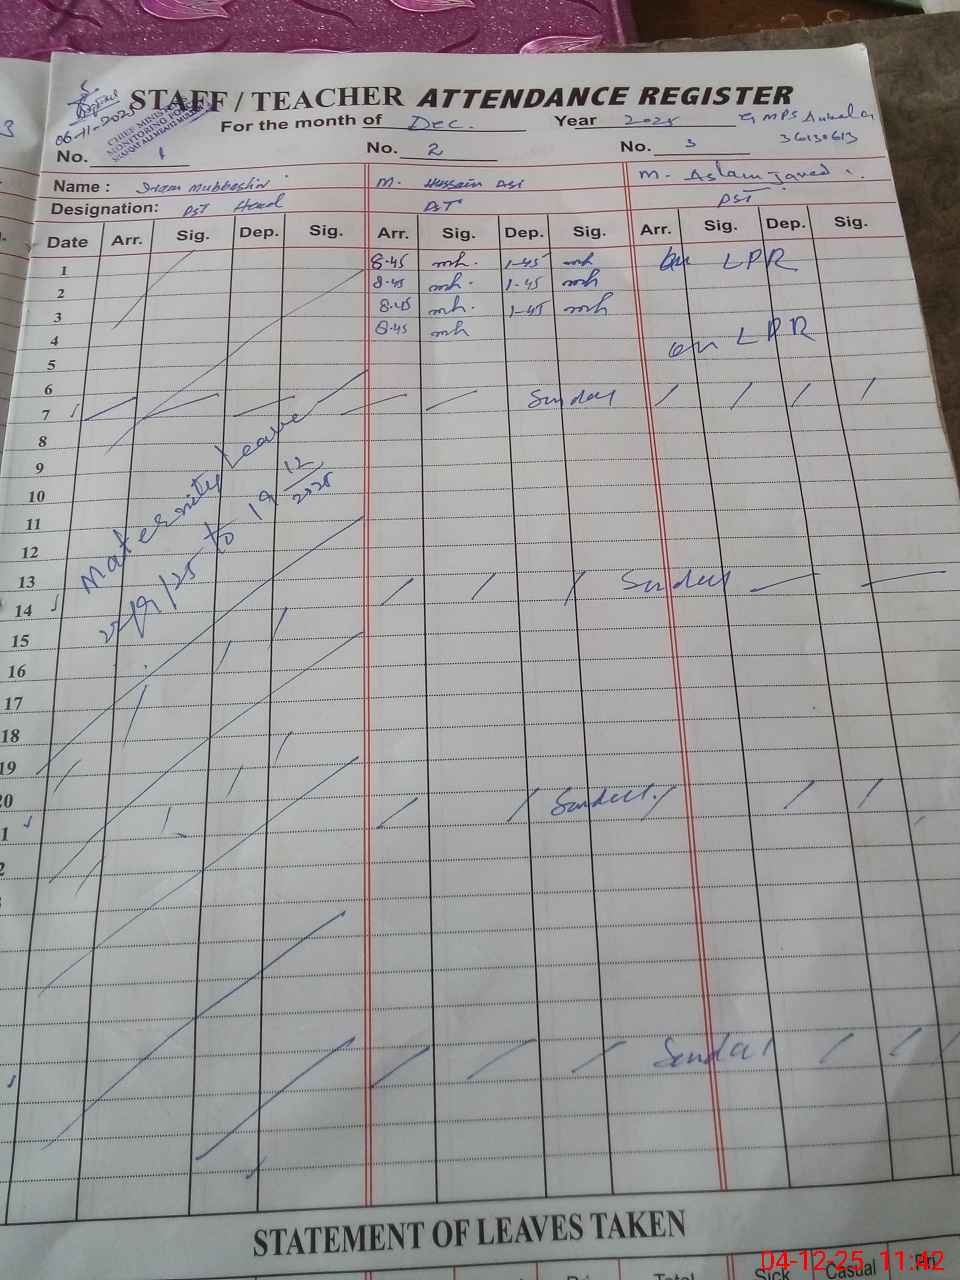 STAFF / TEACHER ATTENDANCE REGISTER
06-11-2025
CHIEF MINIST
MONITORING FOR
For the month of Dec. Year 2025
36130613
No. 1 No. 2 No. 3
Name : Iram Mubbeshir M. Hussain M. Aslam Javed
Designation: PST Head PST PST
Date Arr. Sig. Dep. Sig. Arr. Sig. Dep. Sig. Arr. Sig. Dep. Sig.
1 8-45 mh. 1-45 mh on LPR
2 8-45 mh. 1-45 mh
3 8-45 mh. 1-45 mh
4 8-45 mh on LPR
5
6
7 Sunday
8
9
10
11
12
13
14 Sunday
15
16
17
18
19
20
1 Sunday
2
Maternity Leave
to 19 12/2025
Sunday
STATEMENT OF LEAVES TAKEN
Total Sick Casual
04-12-25 11:42